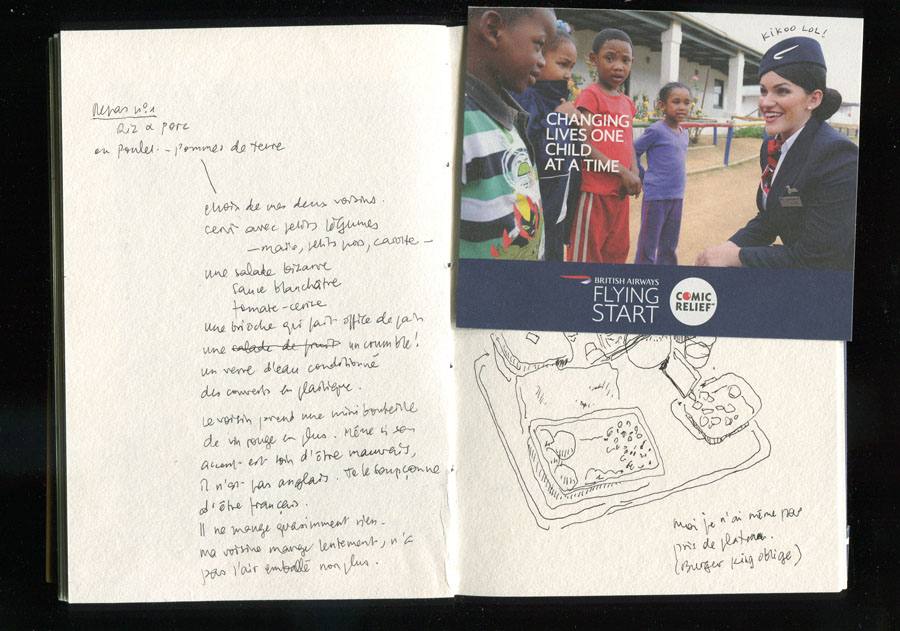 Repas n°1
Riz & porc
ou poulet - pommes de terre
choix de mes deux voisins.
servi avec petits légumes
- maïs, petits pois, carotte -
une salade bizarre
sauce blanchâtre
tomate-cerise
une brioche qui fait office de pain
une salade de fruit un crumble!
un verre d'eau conditionné
des couverts en plastique.
Le voisin prend une mini bouteille
de vin rouge en plus. Même si son
accent est loin d'être mauvais,
il n'est pas anglais. Je le soupçonne
d'être français.
Il ne mange quasimment rien.
Ma voisine mange lentement, n'a
pas l'air emballé non plus.
KIKOO LOL!
CHANGING
LIVES ONE
CHILD
AT A TIME
BRITISH AIRWAYS
FLYING
START
COMIC
RELIEF
Moi je n'ai même pas
pris de plateau.
(Burger King oblige)